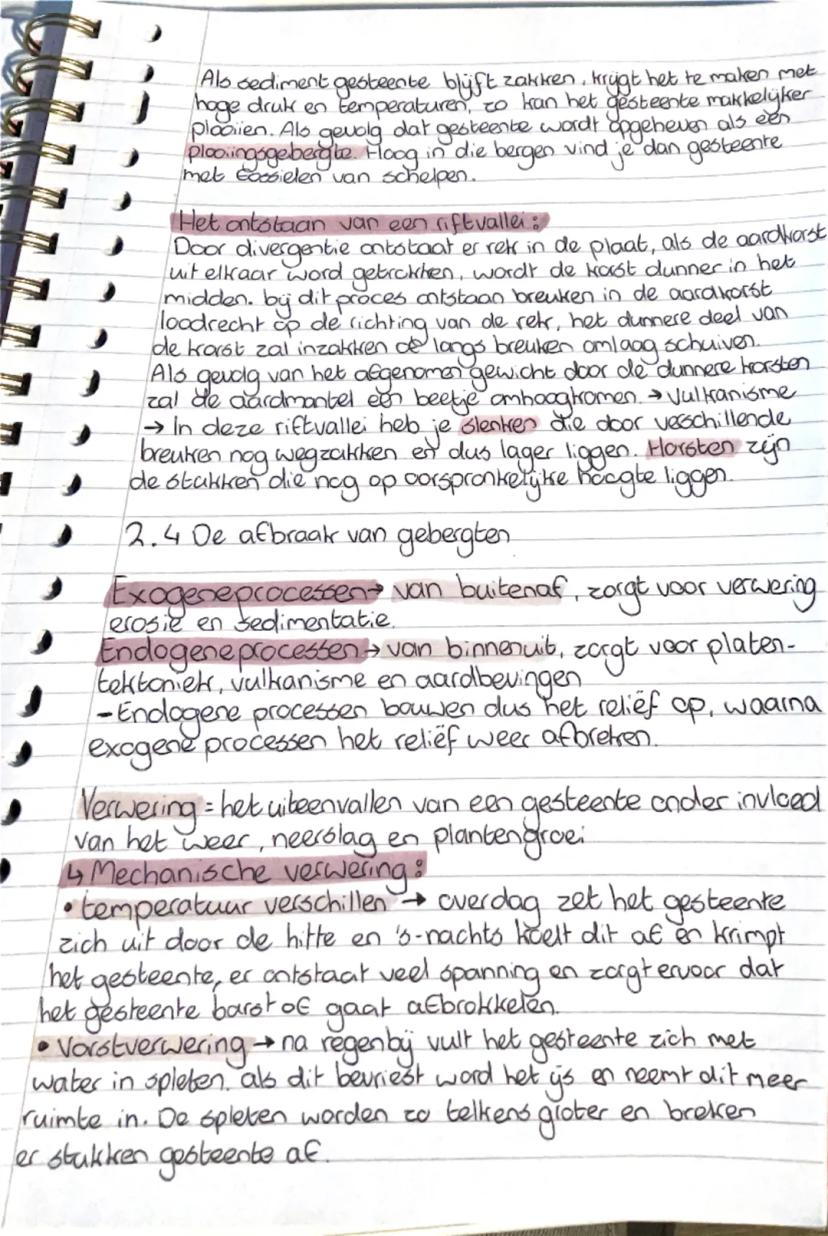 Als sediment gesteente blijft zakken, krijgt het te maken met
hoge druk en temperaturen, zo kan het gesteente makkelijker
plooiien. Als gevolg dat gesteente wordt opgeheven als een
plooiingsgebergte. Hoog in die bergen vind je dan gesteente
met fossielen van schelpen.
Het ontstaan van een riftvallei:
Door divergentie ontstaat er rek in de plaat, als de aardkorst
uit elkaar word getrokken, wordt de korst dunner in het
midden. bij dit proces ontstaan breuken in de aardkorst
loodrecht op de richting van de rek, het dunnere deel van
de korst zal inzakken of langs breuken omlaag schuiven.
Als gevolg van het afgenomen gewicht door de dunnere korsten
zal de aardmantel een beetje omhoogkomen. → Vulkanisme
→ In deze riftvallei heb je slenken die door veschillende
breuken nog wegzakken en dus lager liggen. Horsten zijn
de stukken die nog op oorspronkelijke hoogte liggen.
2.4 De afbraak van gebergten
Exogene processen → van buitenaf, zorgt voor verwering
erosie en sedimentatie.
Endogene processen → van binnenuit, zorgt voor platen-
tektoniek, vulkanisme en aardbevingen
- Endogene processen bouwen dus het reliëf op, waarna
exogene processen het reliëf weer afbreken.
Verwering = het uiteenvallen van een gesteente onder invloed
van het weer, neerslag en plantengroei
↳ Mechanische verwering:
• temperatuur verschillen → overdag zet het gesteente
zich uit door de hitte en 's-nachts koelt dit af en krimpt
het gesteente, er ontstaat veel spanning en zorgt ervoor dat
het gesteente barst of gaat afbrokkelen.
• Vorstverwering → na regenbij vult het gesteente zich met
water in spleten. als dit bevriest word het ijs en neemt dit meer
ruimte in. De spleten worden zo telkens groter en breken
er stukken gesteente af.